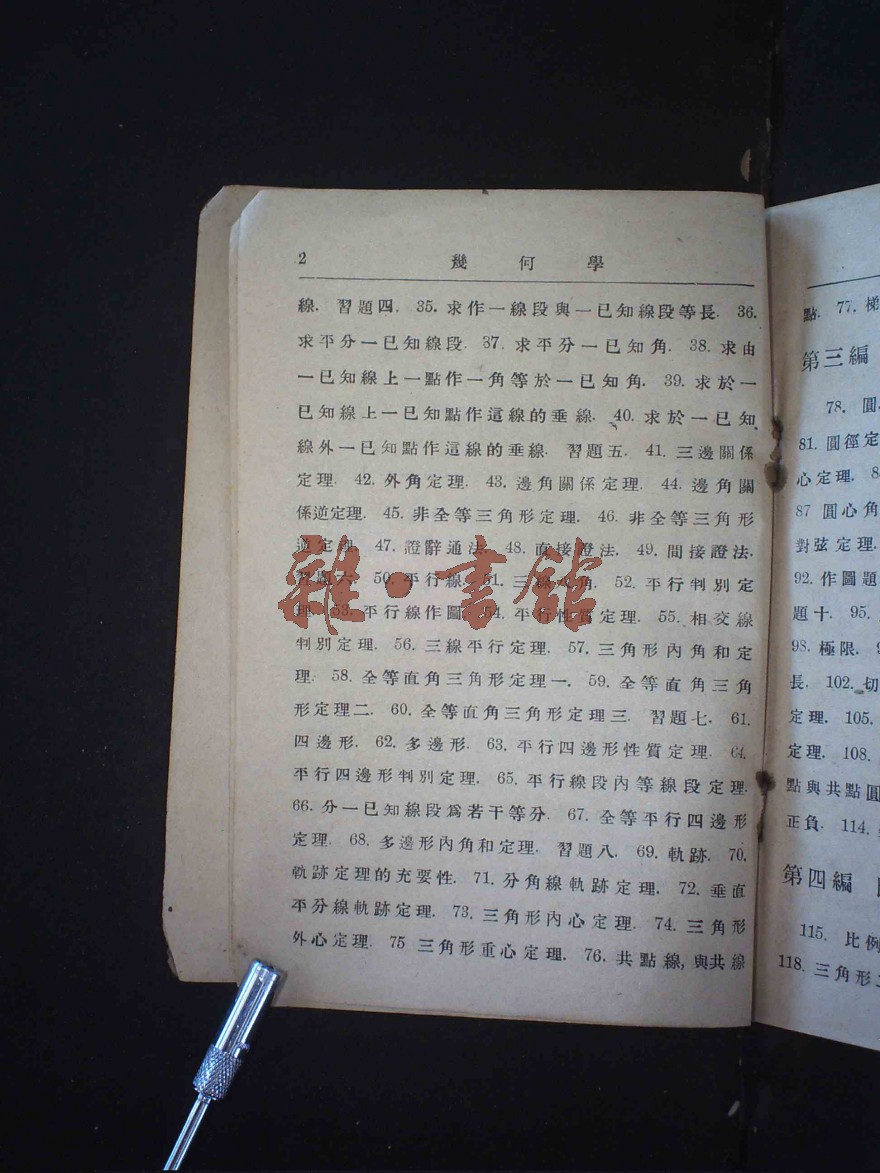 2 幾何學
線. 習題四. 35. 求作一線段與一已知線段等長. 36.
求平分一已知線段. 37. 求平分一已知角. 38. 求由
一已知線上一點作一角等於一已知角. 39. 求於一
已知線上一已知點作這線的垂線. 40. 求於一已知
線外一已知點作這線的垂線. 習題五. 41. 三邊關係
定理. 42. 外角定理. 43. 邊角關係定理. 44. 邊角關
係逆定理. 45. 非全等三角形定理. 46. 非全等三角形
逆定理. 47. 證辭通法. 48. 直接證法. 49. 間接證法.
習題六. 50. 平行線. 51. 三線成角. 52. 平行判別定
理. 53. 平行線作圖. 54. 平行性質定理. 55. 相交線
判別定理. 56. 三線平行定理. 57. 三角形內角和定
理. 58. 全等直角三角形定理一. 59. 全等直角三角
形定理二. 60. 全等直角三角形定理三. 習題七. 61.
四邊形. 62. 多邊形. 63. 平行四邊形性質定理. 64.
平行四邊形判別定理. 65. 平行線段內等線段定理.
66. 分一已知線段爲若干等分. 67. 全等平行四邊形
定理. 68. 多邊形內角和定理. 習題八. 69. 軌跡. 70.
軌跡定理的充要性. 71. 分角線軌跡定理. 72. 垂直
平分線軌跡定理. 73. 三角形內心定理. 74. 三角形
外心定理. 75 三角形重心定理. 76. 共點線,與共線
雜·書館
點. 77. 梯
第三編
78. 圓
81. 圓徑定
心定理. 8
87 圓心角
對弦定理.
92. 作圖題
題十. 95.
98. 極限.
長. 102. 切
定理. 105.
定理. 108.
點與共點圓
正負. 114.
第四編
115. 比例
118. 三角形